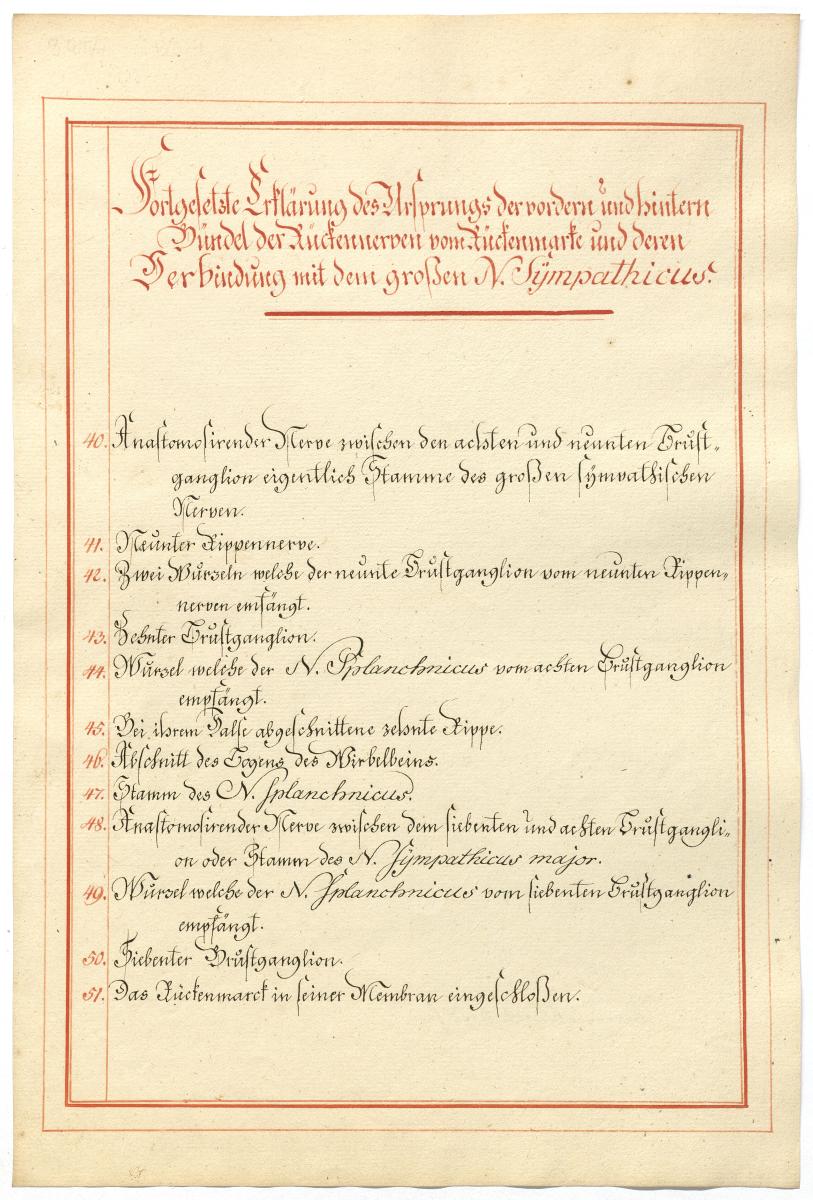 Fortgesetzte Erklärung des Ursprungs der vordern und hintern
Bündel der Rückennerven vom Rückenmarke und deren
Verbindung mit dem großen N. Sÿmpathicus.
40. Anastomosirender Nerve zwischen den achten und neunten Brust-
ganglion eigentlich Stamme des großen sÿmpathischen
Nerven.
41. Neunter Rippennerve.
42. Zwei Wurzeln welche der neunte Brustganglion vom neunten Rippen-
nerven emfängt.
43. Zehnter Brustganglion.
44. Wurzel welche der N. Splanchnicus vom achten Brustganglion
empfängt.
45. Bei ihrem Halse abgeschnittene zehnte Rippe.
46. Abschnitt des Bogens des Wirbelbeins.
47. Stamm des N. Splanchnicus.
48. Anastomosirender Nerve zwischen dem siebenten und achten Brustgangli-
on oder Stamm des N. Sÿmpathicus major.
49. Wurzel welche der N. Splanchnicus vom siebenten Brustganglion
empfängt.
50. Siebenter Brustganglion.
51. Das Rückenmarck in seiner Membran eingeschloßen.